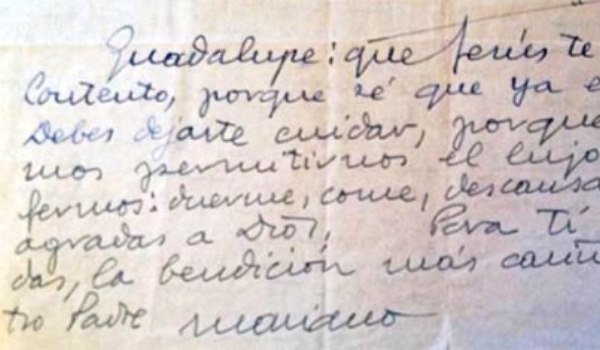 Guadalupe: que Jesús te
Contento, porque sé que ya e
Debes dejarte cuidar, porque
mos permitirnos el lujo
fermos: duerme, come, descansa
agradas a Dios. Para Ti
das, la bendición más cariñ
tro Padre Mariano